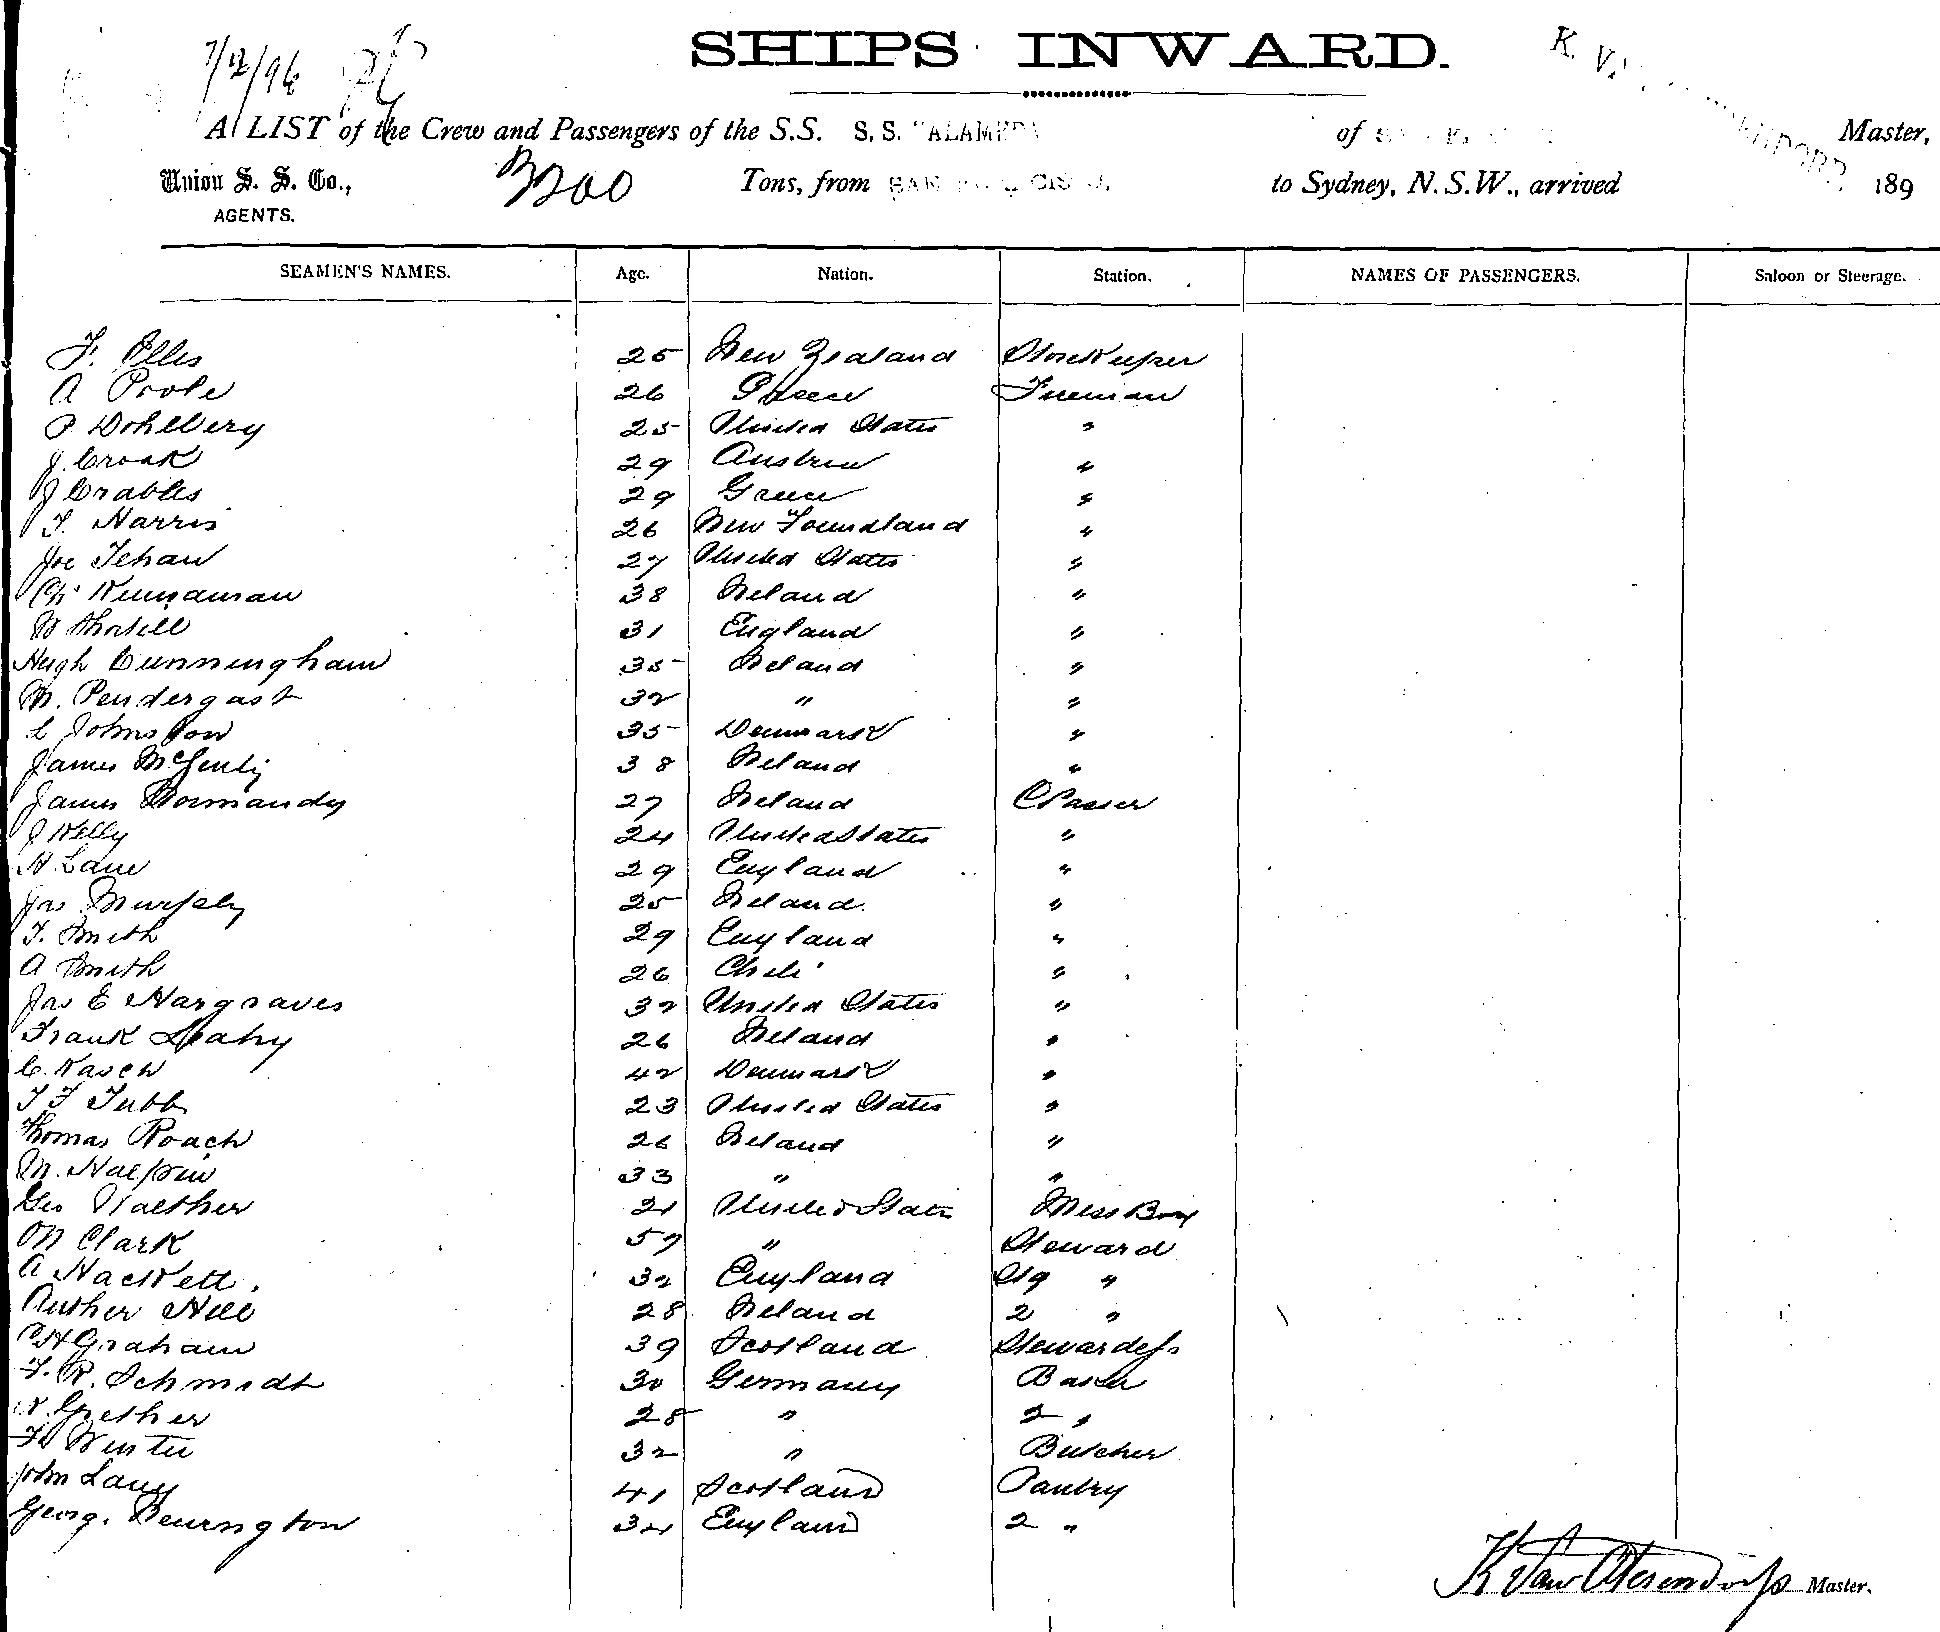 7/12/96
SHIPS INWARD.
A LIST of the Crew and Passengers of the S.S. S.S. "ALAMEDA of Master,
Union S. S. Co., 3200 Tons, from SAN FRANCISCO. to Sydney, N.S.W., arrived 189
AGENTS.
SEAMEN'S NAMES. Age. Nation. Station. NAMES OF PASSENGERS. Saloon or Steerage.
F. Elles 25 New Zealand StoreKeeper
A Poole 26 Greece Fireman
P. Dohlbery 25 United States "
J. Croak 29 Austria "
J Crables 29 Greece "
T. Harris 26 New Foundland "
Joe Tehan 27 United States "
Ch. Kunnaman 38 Ireland "
W 31 England "
Hugh Cunningham 35 Ireland "
M. Pendergast 32 " "
C Johnston 35 Denmark "
James 38 Ireland "
James Normandy 27 Ireland C Passer
J Kelly 24 United States "
H Lane 29 England "
Jas Murphy 25 Ireland. "
T. Smith 29 England "
A Smith 26 Chili "
Jas E Hargraves 32 United States "
Frank Leahy 26 Ireland "
C. Kasch 42 Denmark "
T F Tubb 23 United States "
Thomas Roach 26 Ireland "
M. Halpin 33 " "
Geo Walther 21 United States Mess Boy
M Clark 57 " Steward
A Hackett. 32 England Stg "
Auther Hill 28 Ireland 2 "
H Graham 39 Scotland Stewardess
F. R. Schmidt 30 Germany Baker
N. Grether 28 " 2 "
F. Winter 32 " Butcher
John Lang 41 Scotland Pantry
Georg. Penington 34 England 2 "
K Van Oterendorp Master.